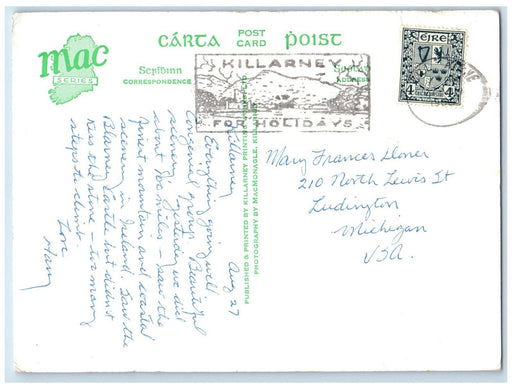 mac
SERIES
CÁRTA POST CARD ṖOIST
Scríḃinn
CORRESPONDENCE
ADDRESS
KILLARNEY
FOR HOLIDAYS
ÉIRE
4
4
PUBLISHED & PRINTED BY KILLARNEY PRINTING
PHOTOGRAPHY BY MACMONAGLE, KILLARNEY
Killarney Aug 27
Everything going well
Congenial group. Beautiful
scenery. Yesterday we did
about 100 miles - saw the
finest mountain and coastal
scenery in Ireland. Saw the
Blarney Castle but didn't
kiss the stone - too many
steps to climb.
Love
Harry
Mary Frances
210 North Lewis St
Ludington
Michigan
USA.